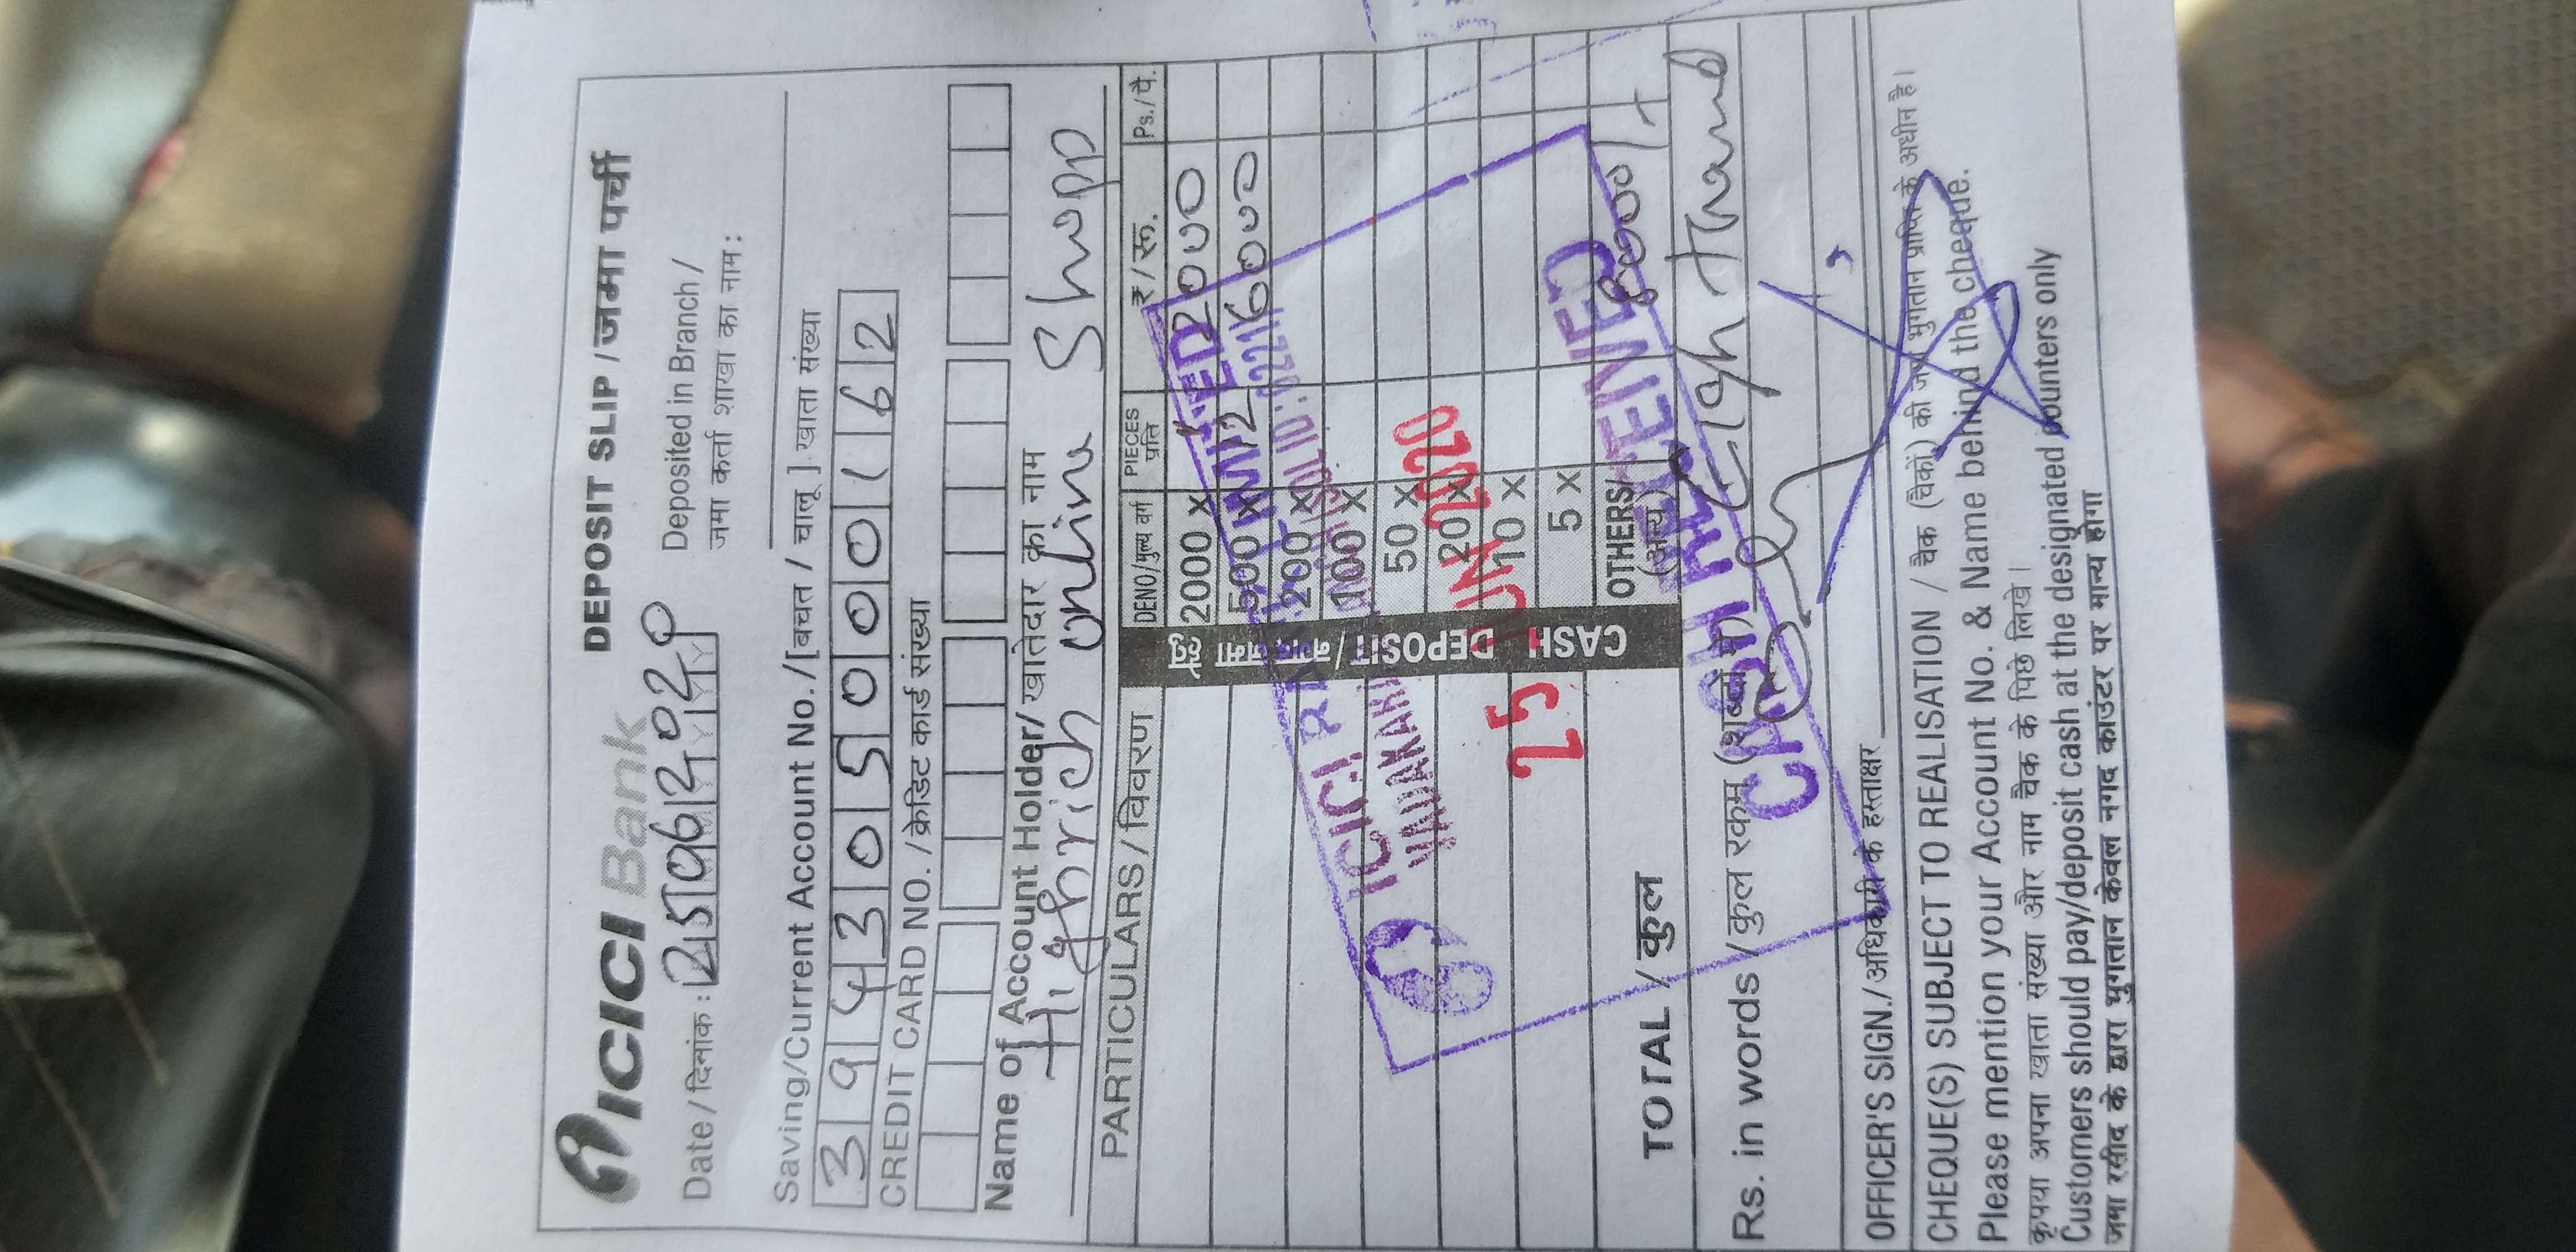 ICICI Bank DEPOSIT SLIP / जमा पर्ची
Date / दिनांक : 25062020
Deposited in Branch /
जमा कर्ता शाखा का नाम :
Saving/Current Account No. / [बचत / चालू ] खाता संख्या
394305000162
CREDIT CARD NO. / क्रेडिट कार्ड संख्या
Name of Account Holder/ खातेदार का नाम
Highrich online Shopp
PARTICULARS / विवरण
CASH DEPOSIT / नगद जमा हेतु
DENO/मूल्य वर्ग PIECES प्रति ₹/रू. Ps./पै.
2000 x 1 2000
500 x 12 6000
200 x
100 x
50 x
20 x
10 x
5 x
OTHERS/ (अन्य) 8000/-
TOTAL / कुल
ICICI BANK LIMITED
(SOL ID: 6221)
25 JUN 2020
CASH RECEIVED
Rs. in words / कुल रकम (शब्दों में) Eigh
OFFICER'S SIGN./ अधिकारी के हस्ताक्षर
CHEQUE(S) SUBJECT TO REALISATION / चैक (चैकों) की जमा भुगतान प्राप्ति के अधीन है।
Please mention your Account No. & Name behind the cheque.
कृपया अपना खाता संख्या और नाम चैक के पिछे लिखे।
Customers should pay/deposit cash at the designated counters only
जमा रसीद के द्वारा भुगतान केवल नगद काउंटर पर मान्य होगा